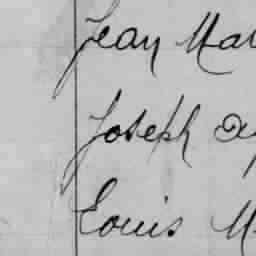 Jean Ma
Joseph
Louis M